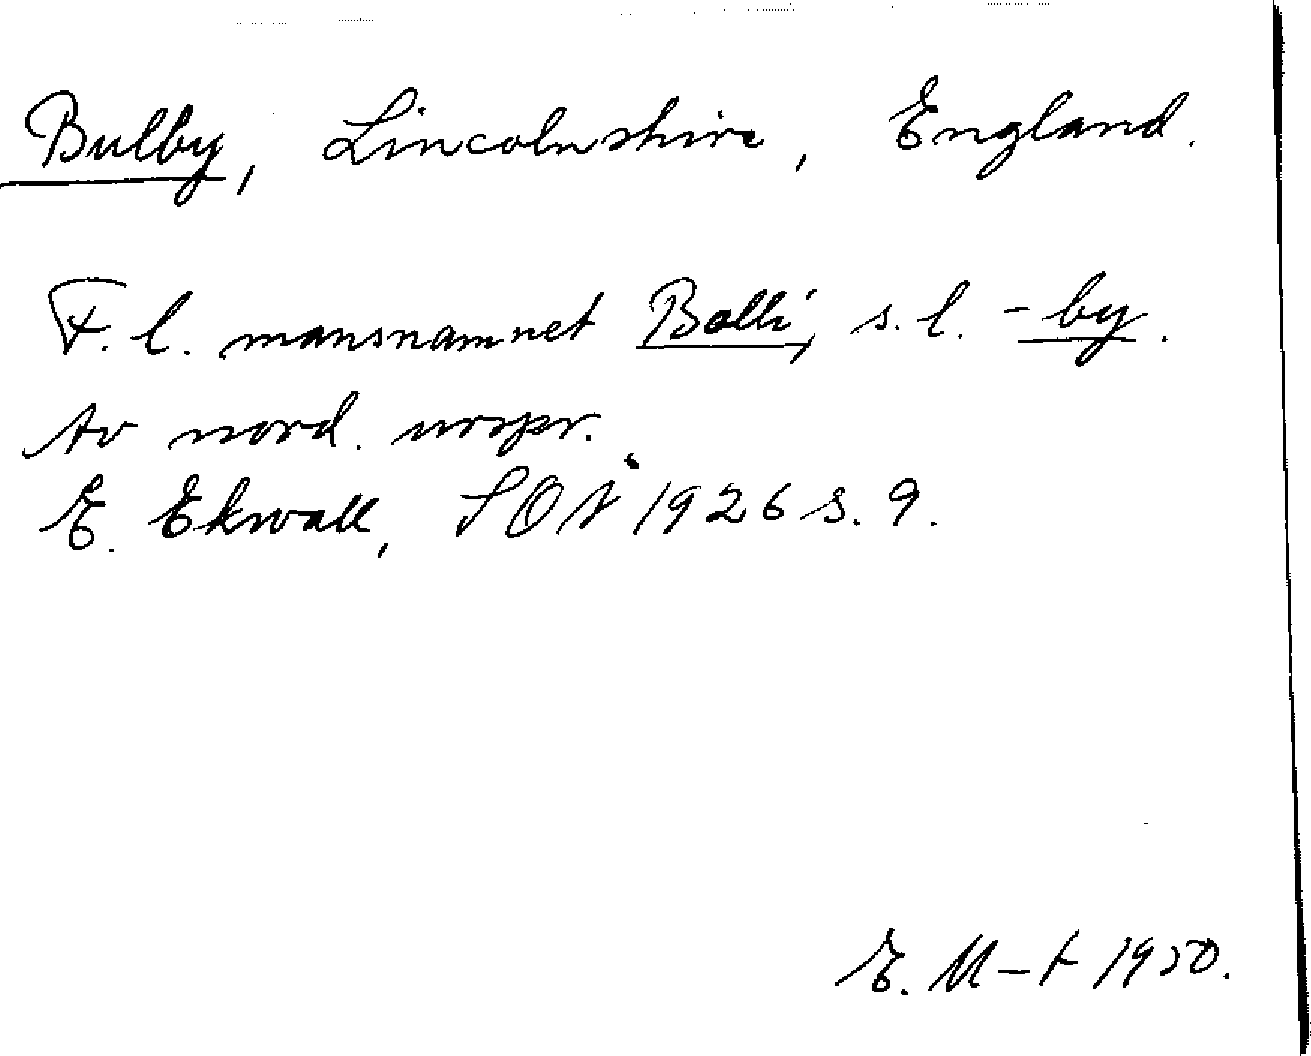 Bulby, Lincolnshire, England.
F. l. mansnamnet Bolli, s. l. -by.
Av nord. urspr.
E. Ekwall, SOÅ 1926 s. 9.
E. M-t 1950.